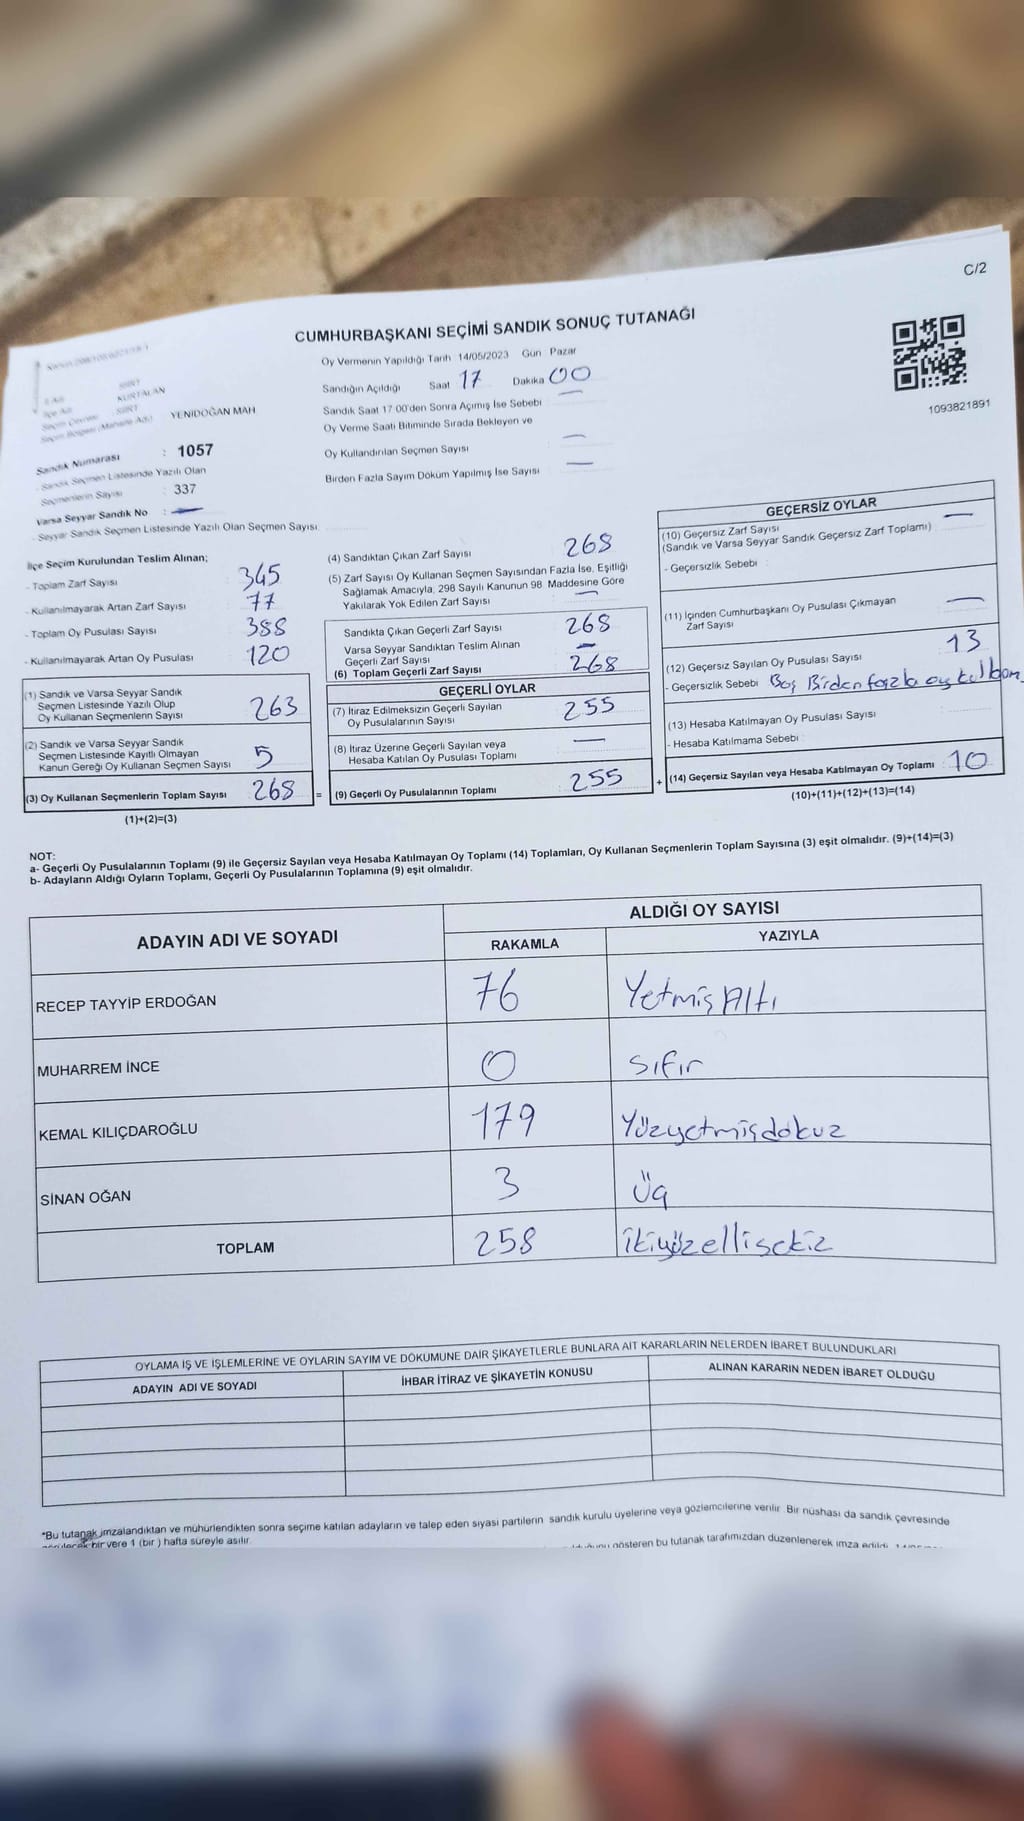 C/2
CUMHURBAŞKANI SEÇİMİ SANDIK SONUÇ TUTANAĞI
1093821891
Oy Vermenin Yapıldığı Tarih 14/05/2023 Gün Pazar
Sandığın Açıldığı Saat 17 Dakika 00
Sandık Saat 17 00'den Sonra Açımış İse Sebebi —
Oy Verme Saati Bitiminde Sırada Bekleyen ve
Oy Kullandırılan Seçmen Sayısı —
Birden Fazla Sayım Döküm Yapılmış İse Sayısı —
SİİRT
İlçe Adı KURTALAN
Seçim Çevresi SİİRT
Seçim Bölgesi (Mahalle Adı) YENİDOĞAN MAH
Sandık Numarası : 1057
- Sandık Seçmen Listesinde Yazılı Olan
Seçmenlerin Sayısı : 337
Varsa Seyyar Sandık No : —
- Seyyar Sandık Seçmen Listesinde Yazılı Olan Seçmen Sayısı
İlçe Seçim Kurulundan Teslim Alınan;
- Toplam Zarf Sayısı 345
- Kullanılmayarak Artan Zarf Sayısı 77
- Toplam Oy Pusulası Sayısı 388
- Kullanılmayarak Artan Oy Pusulası 120
(1) Sandık ve Varsa Seyyar Sandık
Seçmen Listesinde Yazılı Olup
Oy Kullanan Seçmenlerin Sayısı 263
(2) Sandık ve Varsa Seyyar Sandık
Seçmen Listesinde Kayıtlı Olmayan
Kanun Gereği Oy Kullanan Seçmen Sayısı 5
(3) Oy Kullanan Seçmenlerin Toplam Sayısı 268 =
(1)+(2)=(3)
(4) Sandıktan Çıkan Zarf Sayısı 268
(5) Zarf Sayısı Oy Kullanan Seçmen Sayısından Fazla İse, Eşitliği
Sağlamak Amacıyla, 298 Sayılı Kanunun 98. Maddesine Göre
Yakılarak Yok Edilen Zarf Sayısı —
Sandıkta Çıkan Geçerli Zarf Sayısı 268
Varsa Seyyar Sandıktan Teslim Alınan
Geçerli Zarf Sayısı —
(6) Toplam Geçerli Zarf Sayısı 268
GEÇERLİ OYLAR
(7) İtiraz Edilmeksizin Geçerli Sayılan
Oy Pusulalarının Sayısı 255
(8) İtiraz Üzerine Geçerli Sayılan veya
Hesaba Katılan Oy Pusulası Toplamı —
(9) Geçerli Oy Pusulalarının Toplamı 255 +
GEÇERSİZ OYLAR
(10) Geçersiz Zarf Sayısı —
(Sandık ve Varsa Seyyar Sandık Geçersiz Zarf Toplamı)
- Geçersizlik Sebebi :
(11) İçinden Cumhurbaşkanı Oy Pusulası Çıkmayan
Zarf Sayısı —
(12) Geçersiz Sayılan Oy Pusulası Sayısı 13
- Geçersizlik Sebebi Boş Birden fazla oy kullanm
(13) Hesaba Katılmayan Oy Pusulası Sayısı
- Hesaba Katılmama Sebebi :
(14) Geçersiz Sayılan veya Hesaba Katılmayan Oy Toplamı 10
(10)+(11)+(12)+(13)=(14)
NOT:
a- Geçerli Oy Pusulalarının Toplamı (9) ile Geçersiz Sayılan veya Hesaba Katılmayan Oy Toplamı (14) Toplamları, Oy Kullanan Seçmenlerin Toplam Sayısına (3) eşit olmalıdır. (9)+(14)=(3)
b- Adayların Aldığı Oyların Toplamı, Geçerli Oy Pusulalarının Toplamına (9) eşit olmalıdır.
ADAYIN ADI VE SOYADI ALDIĞI OY SAYISI
RAKAMLA YAZIYLA
RECEP TAYYİP ERDOĞAN 76 Yetmiş Altı
MUHARREM İNCE 0 Sıfır
KEMAL KILIÇDAROĞLU 179 Yüzyetmişdokuz
SİNAN OĞAN 3 Üç
TOPLAM 258 ikiyüzellisekiz
OYLAMA İŞ VE İŞLEMLERİNE VE OYLARIN SAYIM VE DÖKÜMÜNE DAİR ŞİKAYETLERLE BUNLARA AİT KARARLARIN NELERDEN İBARET BULUNDUKLARI
ADAYIN ADI VE SOYADI İHBAR İTİRAZ VE ŞİKAYETİN KONUSU ALINAN KARARIN NEDEN İBARET OLDUĞU
*Bu tutanak imzalandıktan ve mühürlendikten sonra seçime katılan adayların ve talep eden siyasi partilerin sandık kurulu üyelerine veya gözlemcilerine verilir Bir nüshası da sandık çevresinde
bir yere 1 (bir) hafta süreyle asılır.
gösteren bu tutanak tarafımızdan düzenlenerek imza edildi.